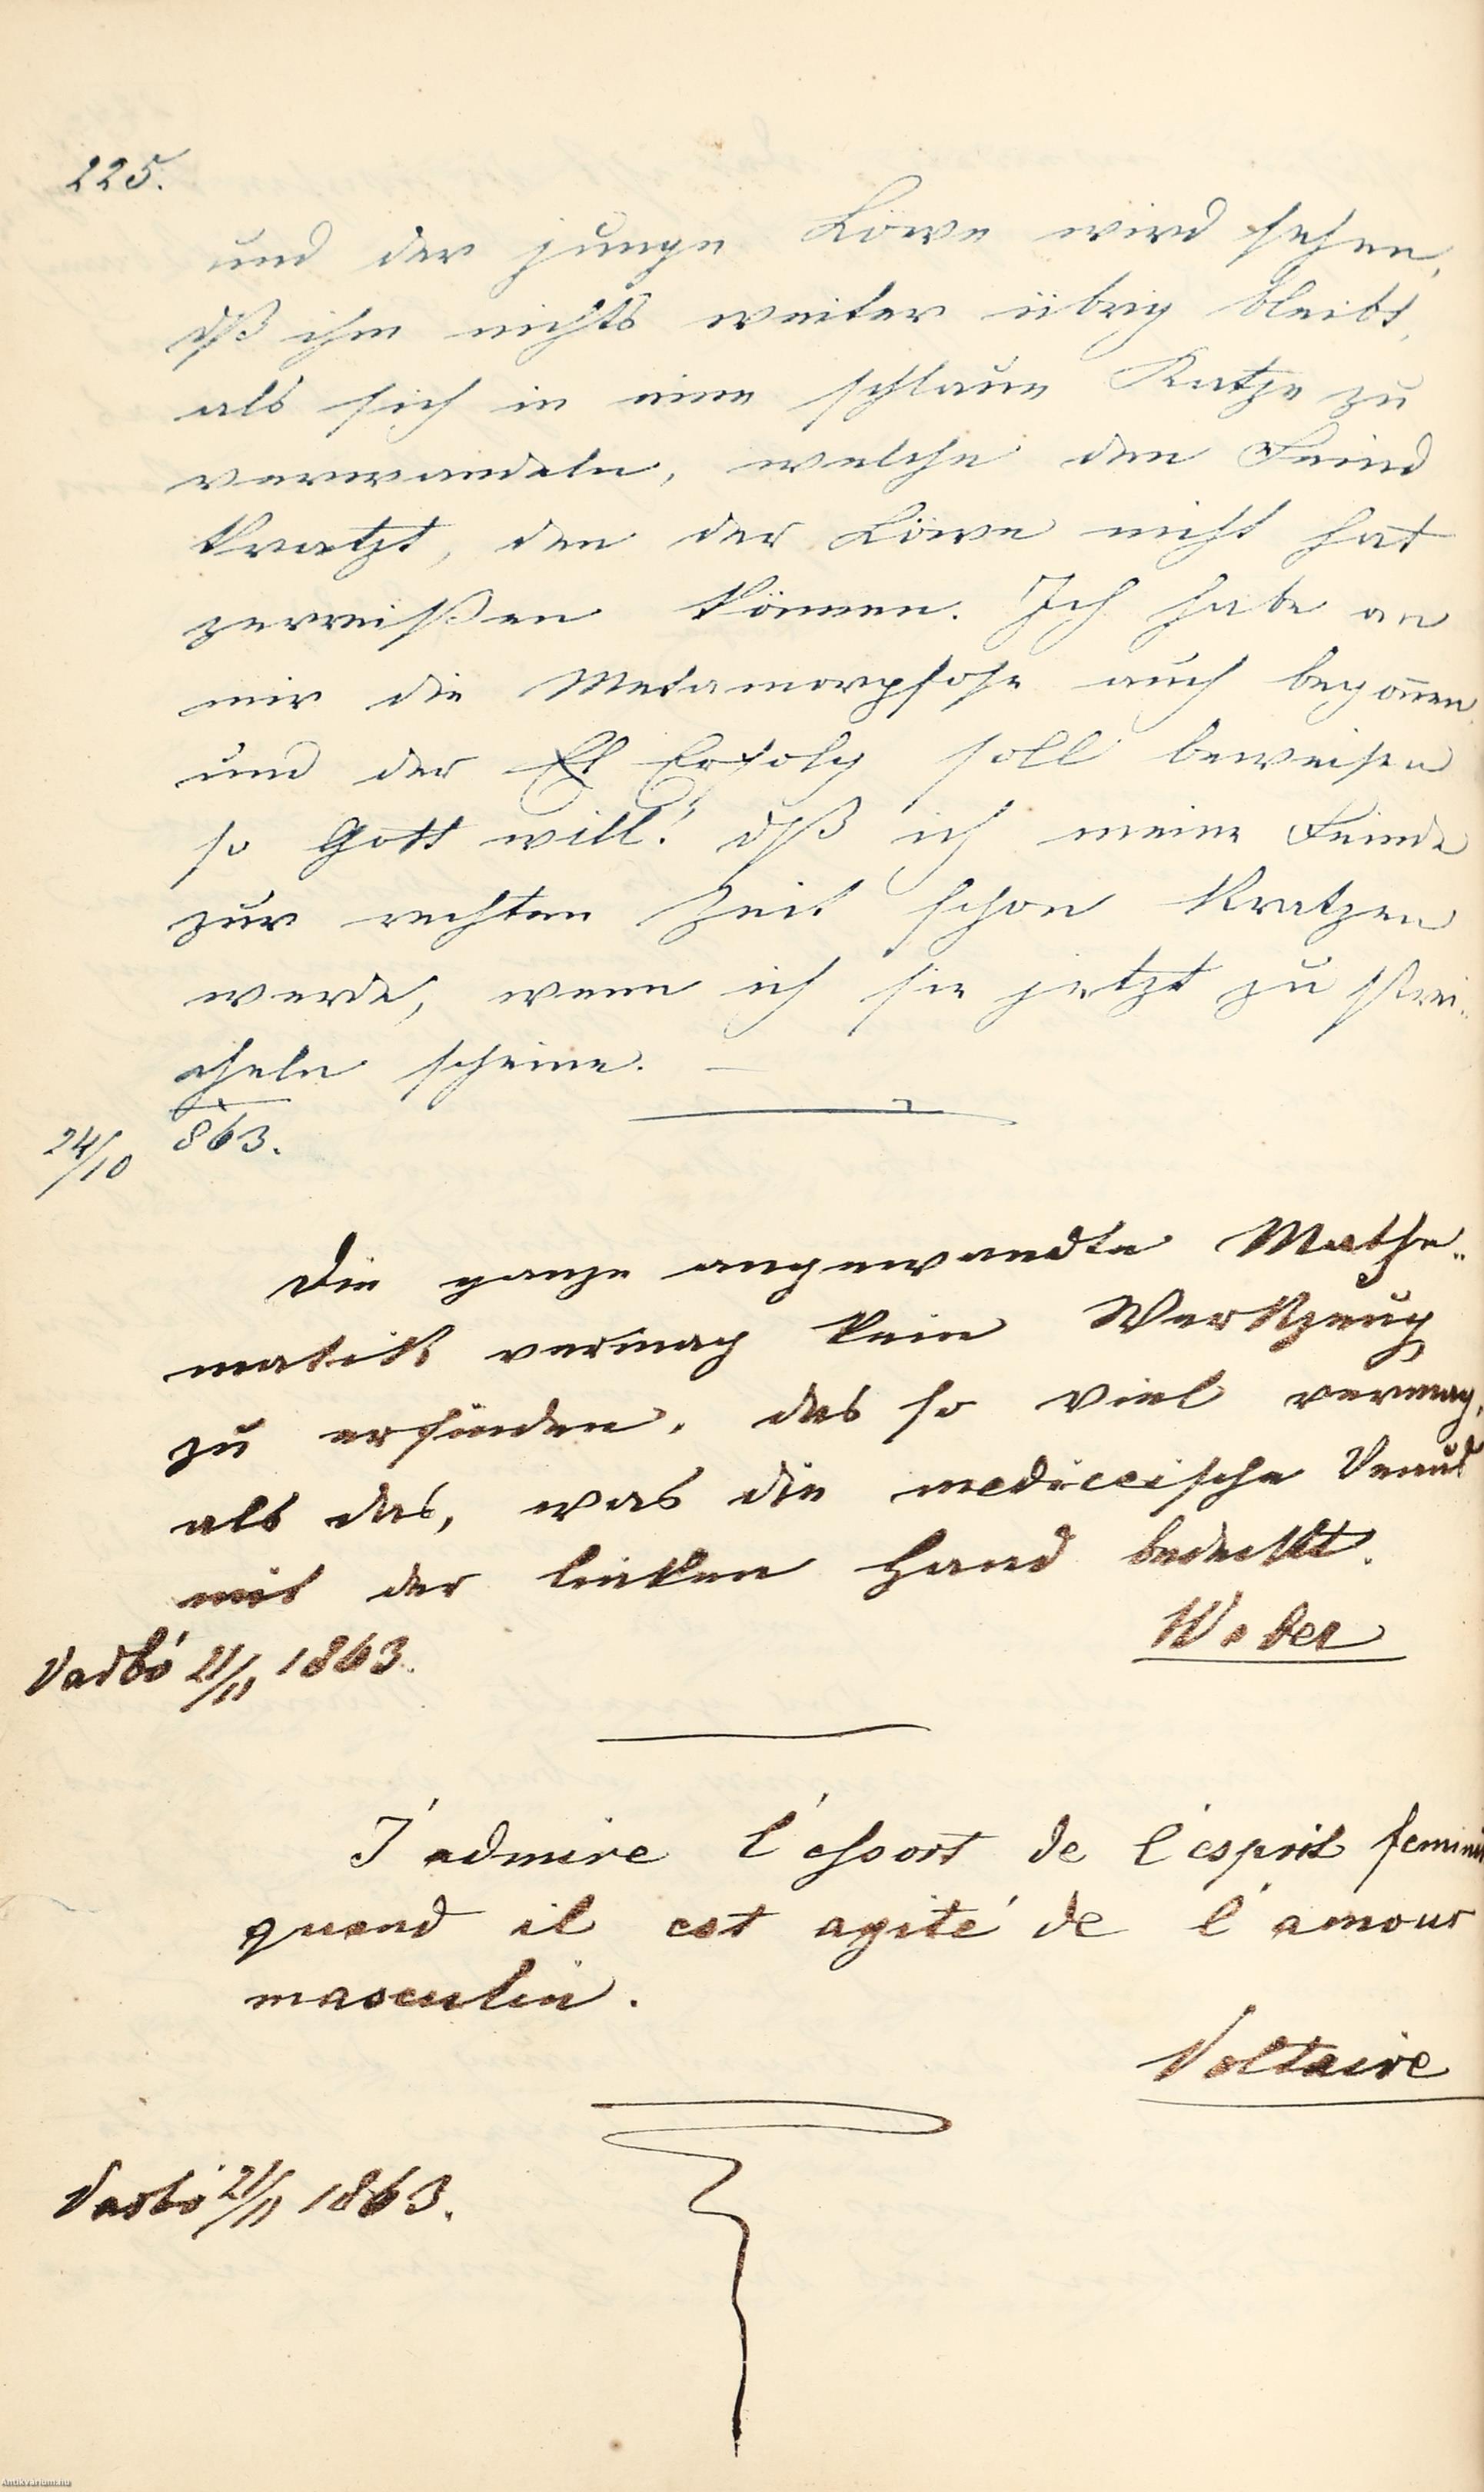 225.
und der junge Löwe wird sehen,
dß ihm nichts weiter übrig bleibt,
als sich in eine schlaue Katze zu
verwandeln, welche den Feind
kratzt, den der Löwe nicht hat
zerreißen können. Ich habe an
mir die Metamorphose auch begonnen,
und der Erfolg soll beweisen
so Gott will! dß ich meine Feinde
zur rechten Zeit schon kratzen
werde, wenn ich sie jetzt zu strei-
cheln scheine. —
24/10 863.
Die ganze angewandte Mathe-
matik vermag kein Werkzeug
zu erfinden, das so viel vermag,
als das, was die mediceische Venus
mit der linken Hand bedeckt.
Weber
Vadkó 21/11 1863.
J'admire l'essort de l'esprit feminin
quand il est agité de l'amour
masculin.
Voltaire
21/11 1863.
Antikvarium.hu